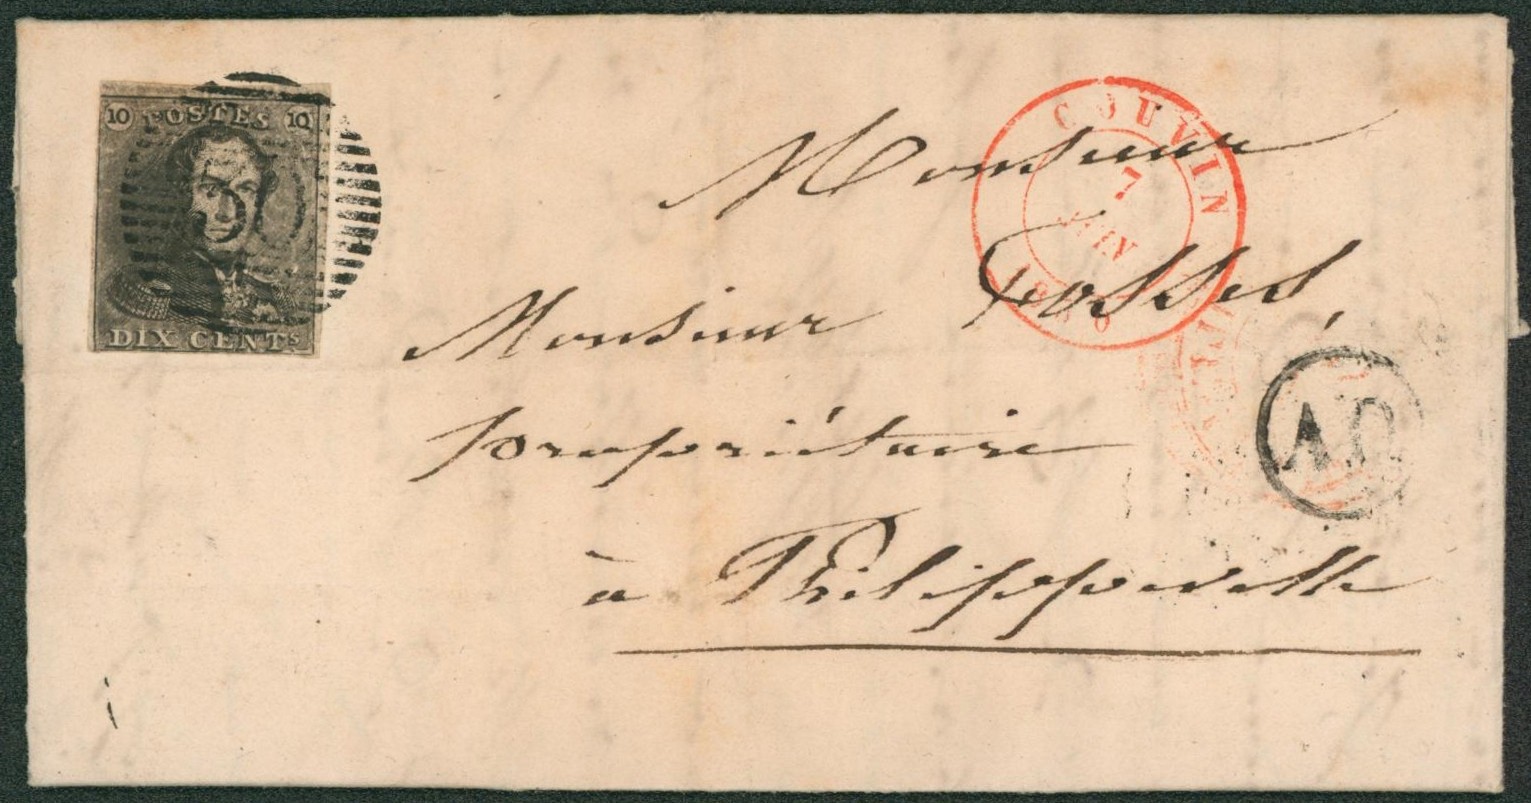 10 POSTES 10
DIX CENTS
COUVIN
7
JUIN
1850
Monsieur
Monsieur
propriétaire
à Philippeville